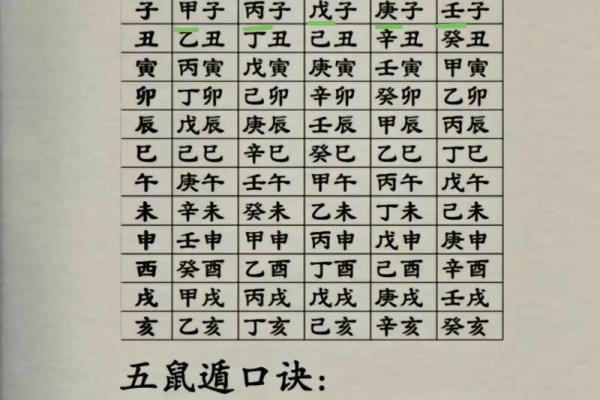 子 甲子 丙子 戊子 庚子 壬子
丑 乙丑 丁丑 己丑 辛丑 癸丑
寅 丙寅 戊寅 庚寅 壬寅 甲寅
卯 丁卯 己卯 辛卯 癸卯 乙卯
辰 戊辰 庚辰 壬辰 甲辰 丙辰
巳 己巳 辛巳 癸巳 乙巳 丁巳
午 庚午 壬午 甲午 丙午 戊午
未 辛未 癸未 乙未 丁未 己未
申 壬申 甲申 丙申 戊申 庚申
西 癸酉 乙酉 丁酉 己酉 辛酉
戌 甲戌 丙戌 戊戌 庚戌 壬戌
亥 乙亥 丁亥 己亥 辛亥 癸亥
五鼠遁口诀：